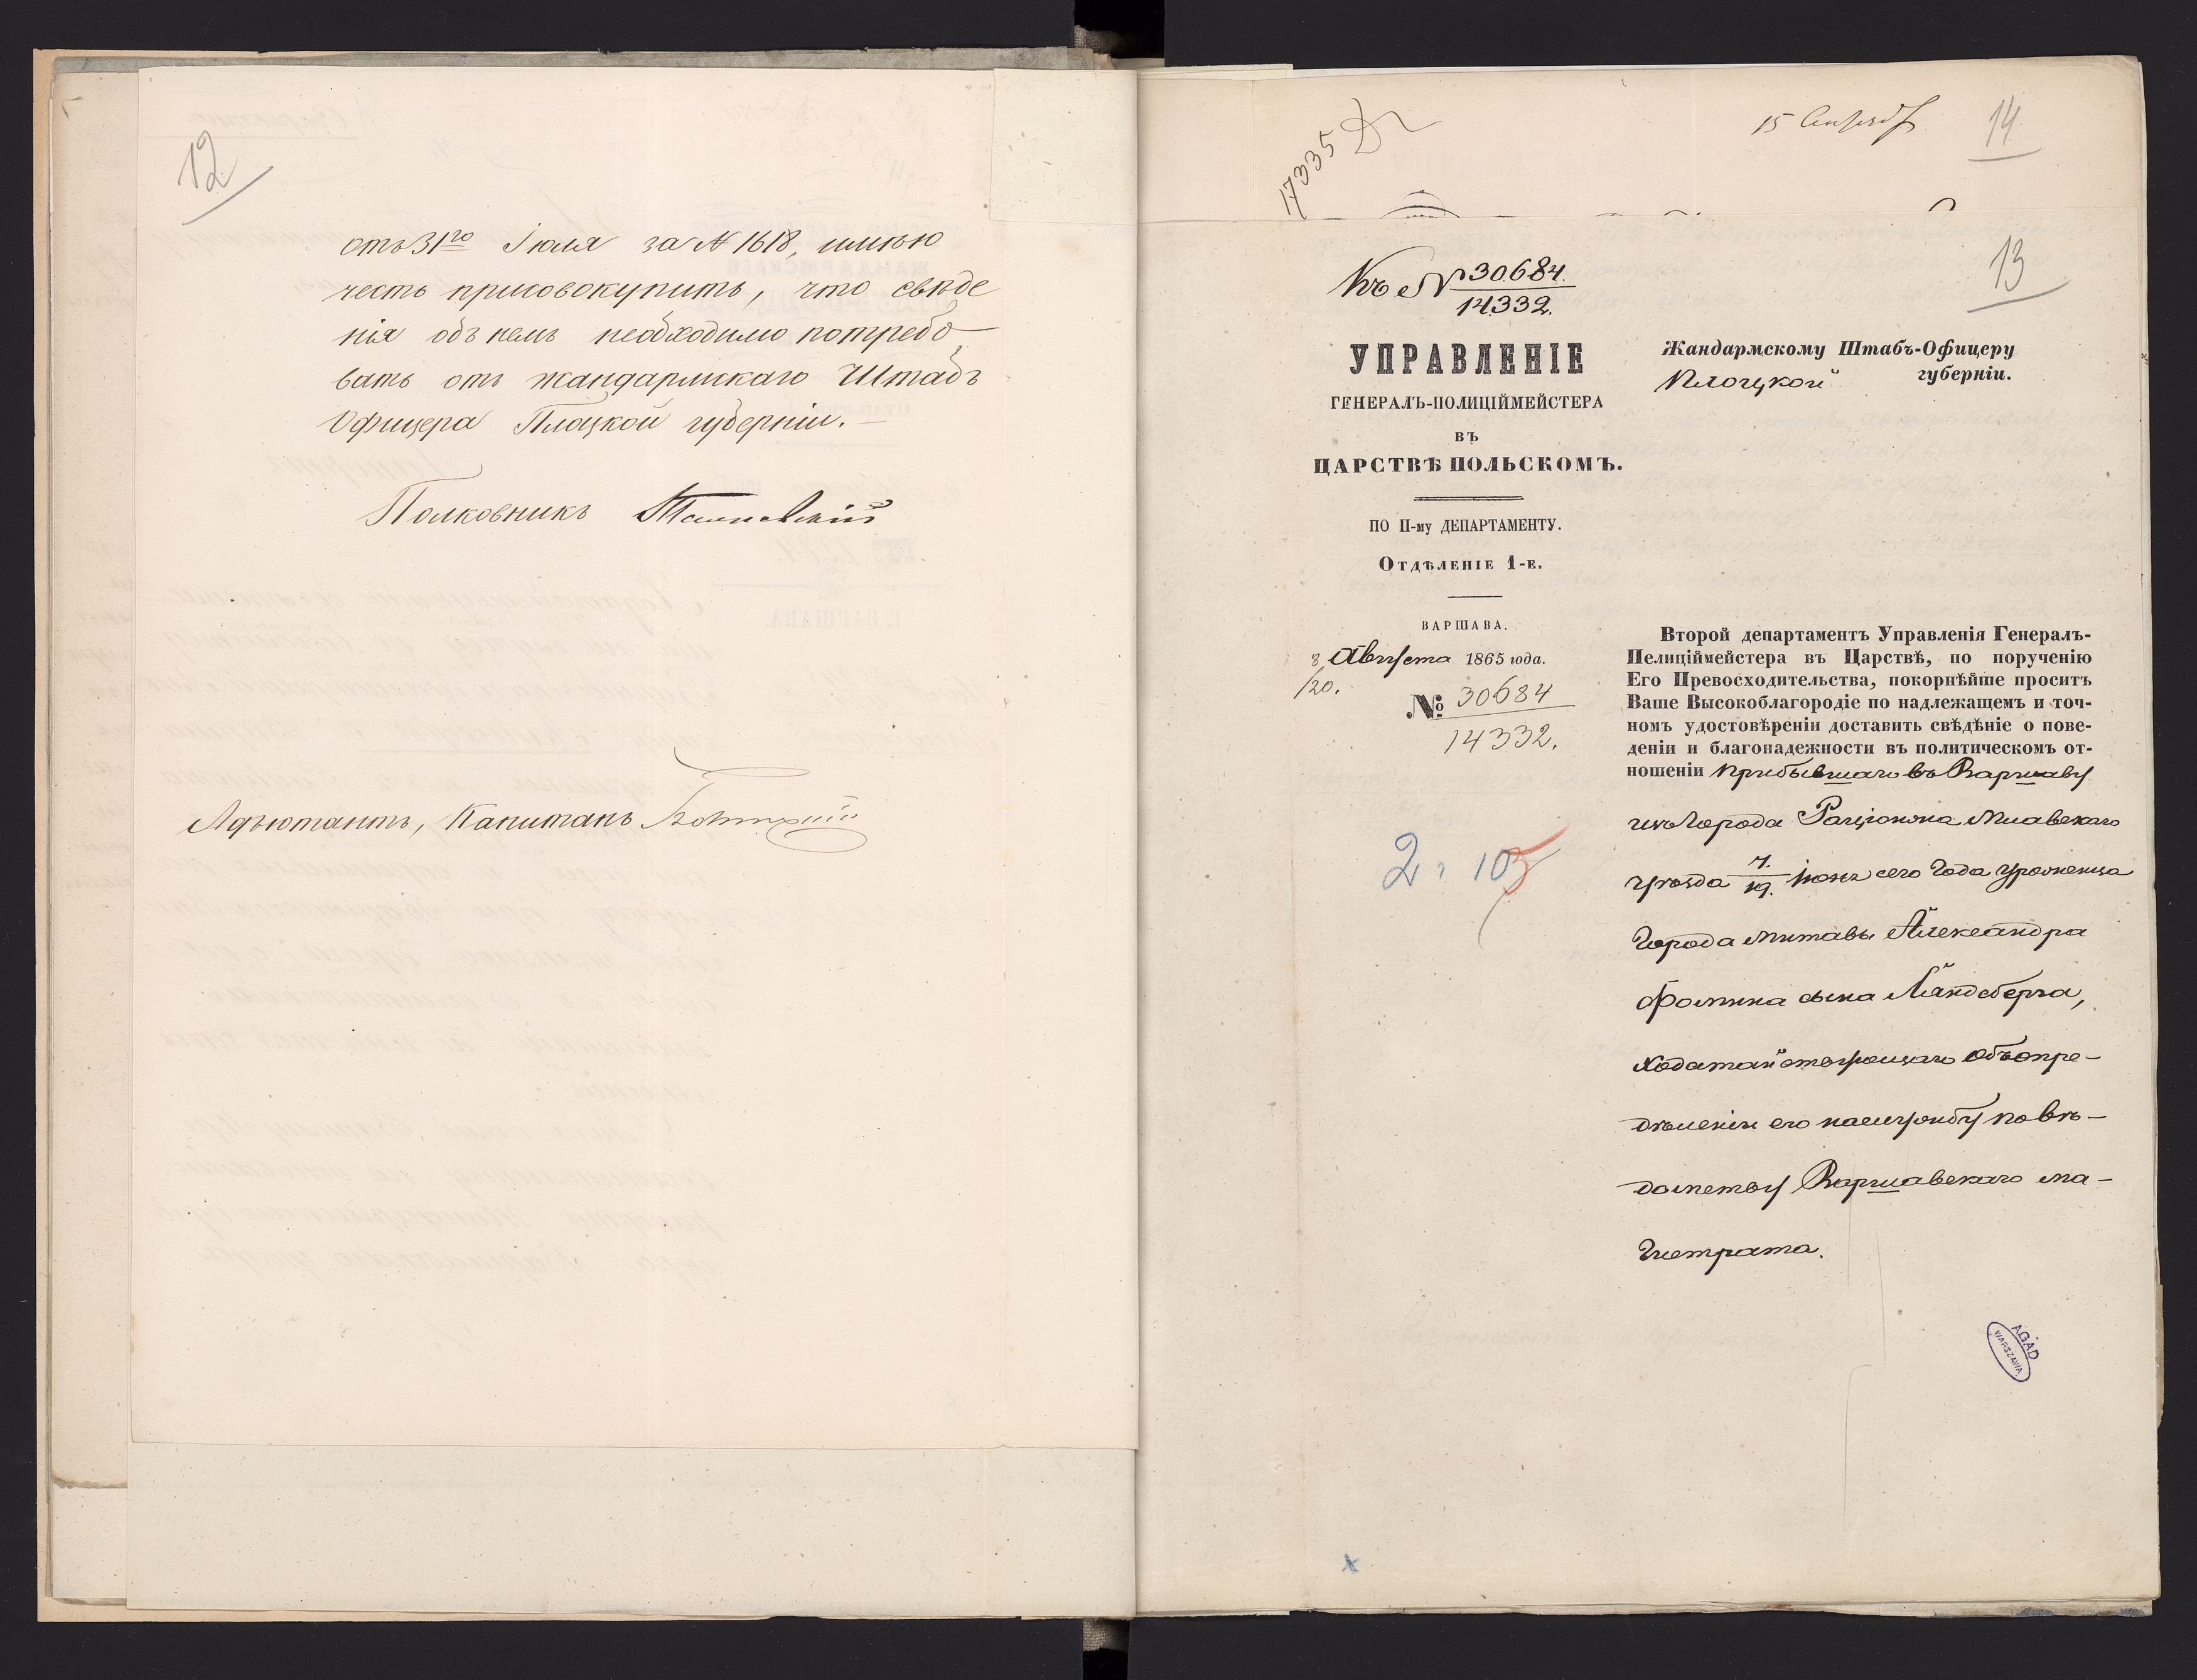 12
отъ 31го Іюля за № 1618, имѣю
честь присовокупить, что свѣде
нія объ немъ необходимо потребо
вать отъ жандармскаго Штабъ
Офицера Плоцкой губерніи. —
Полковникъ
Адъютантъ, Капитанъ
17335
15 Сентяб
14
13
Къ № 30684.
14332.
УПРАВЛЕНІЕ
ГЕНЕРАЛЪ-ПОЛИЦІЙМЕЙСТЕРА
ВЪ
ЦАРСТВѢ ПОЛЬСКОМЪ.
ПО II-му ДЕПАРТАМЕНТУ.
Отдѣленіе 1-е.
ВАРШАВА.
8/20. Августа 1865 года.
№ 30684
14332.
2. 105
Жандармскому Штабъ-Офицеру
Плоцкой губерніи.
Второй департаментъ Управленія Генералъ-
Пелиціймейстера въ Царствѣ, по порученію
Его Превосходительства, покорнѣйше проситъ
Ваше Высокоблагородіе по надлежащемъ и точ-
номъ удостовѣреніи доставить свѣдѣніе о пове-
деніи и благонадежности въ политическомъ от-
ношеніи прибывшаго въ Варшаву
изъ города Раціонжа Млавскаго
уѣзда 7./19. Іюня сего года уроженца
города Митавы Александра
Фомина сына Ландсберга,
ходатайствующаго объ опре-
дѣленіи его на службу по вѣ-
домству Варшавскаго ма-
гистрата.
AGAD
WARSZAWA